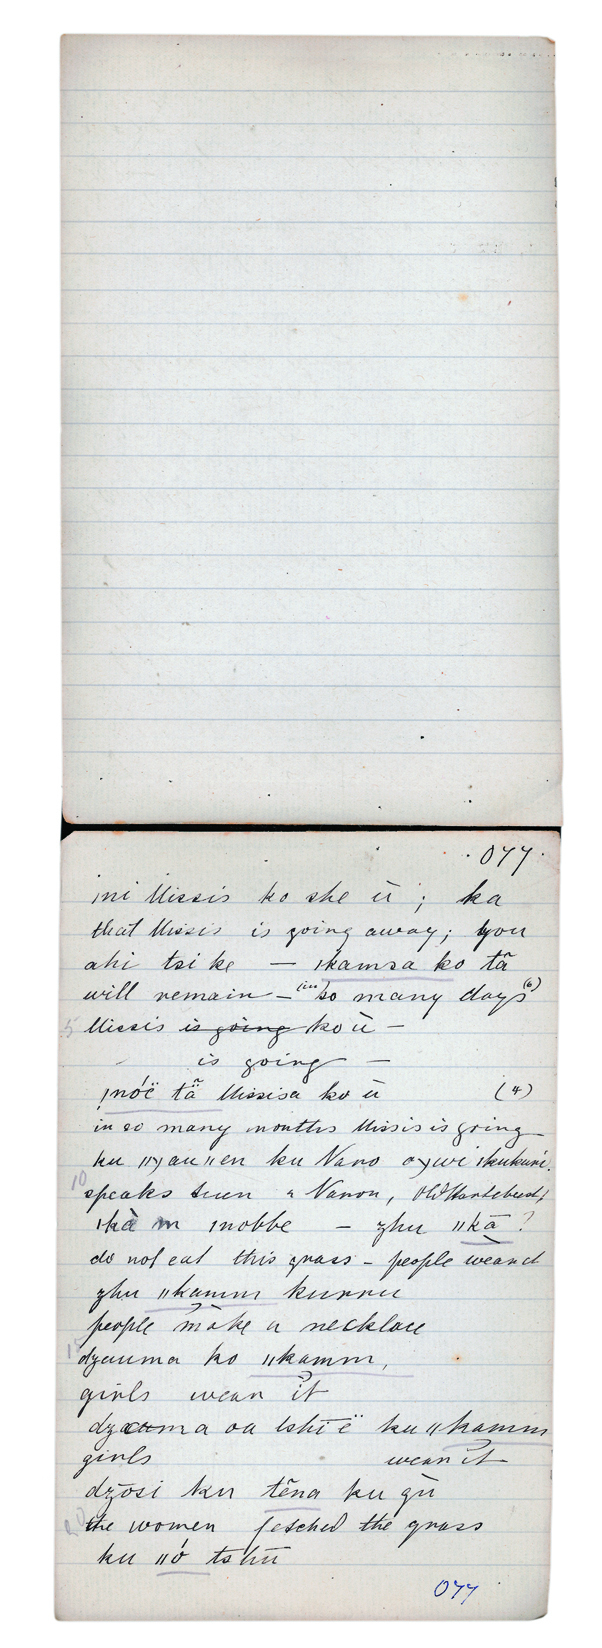 077.
ǀni Missis ko she ū ; ka
that Missis is going away; you
ahi tsi ke — ǀkamsa ko tã
will remain — (in) so many days (6)
5 Missis is going ko ū —
is going —
ǃnóë tã Missisa ko ū (4)
in so many months Missis is going
ku ku Nano
10 speaks a Nanon, old Hartebeest,
ǀkà m ǀnobbe — zhu ǁkā ?
do not eat this grass — people wear it
zhu ǁkamm kurru
people make a necklace
15 dzauma ko ǁkamm,
girls wear it
dzauma oa tshī ë ku ǁkamm
girls wear it
džosi ku tẽna ku gū
20 the women fetched the grass
ku ǁó tshū
077